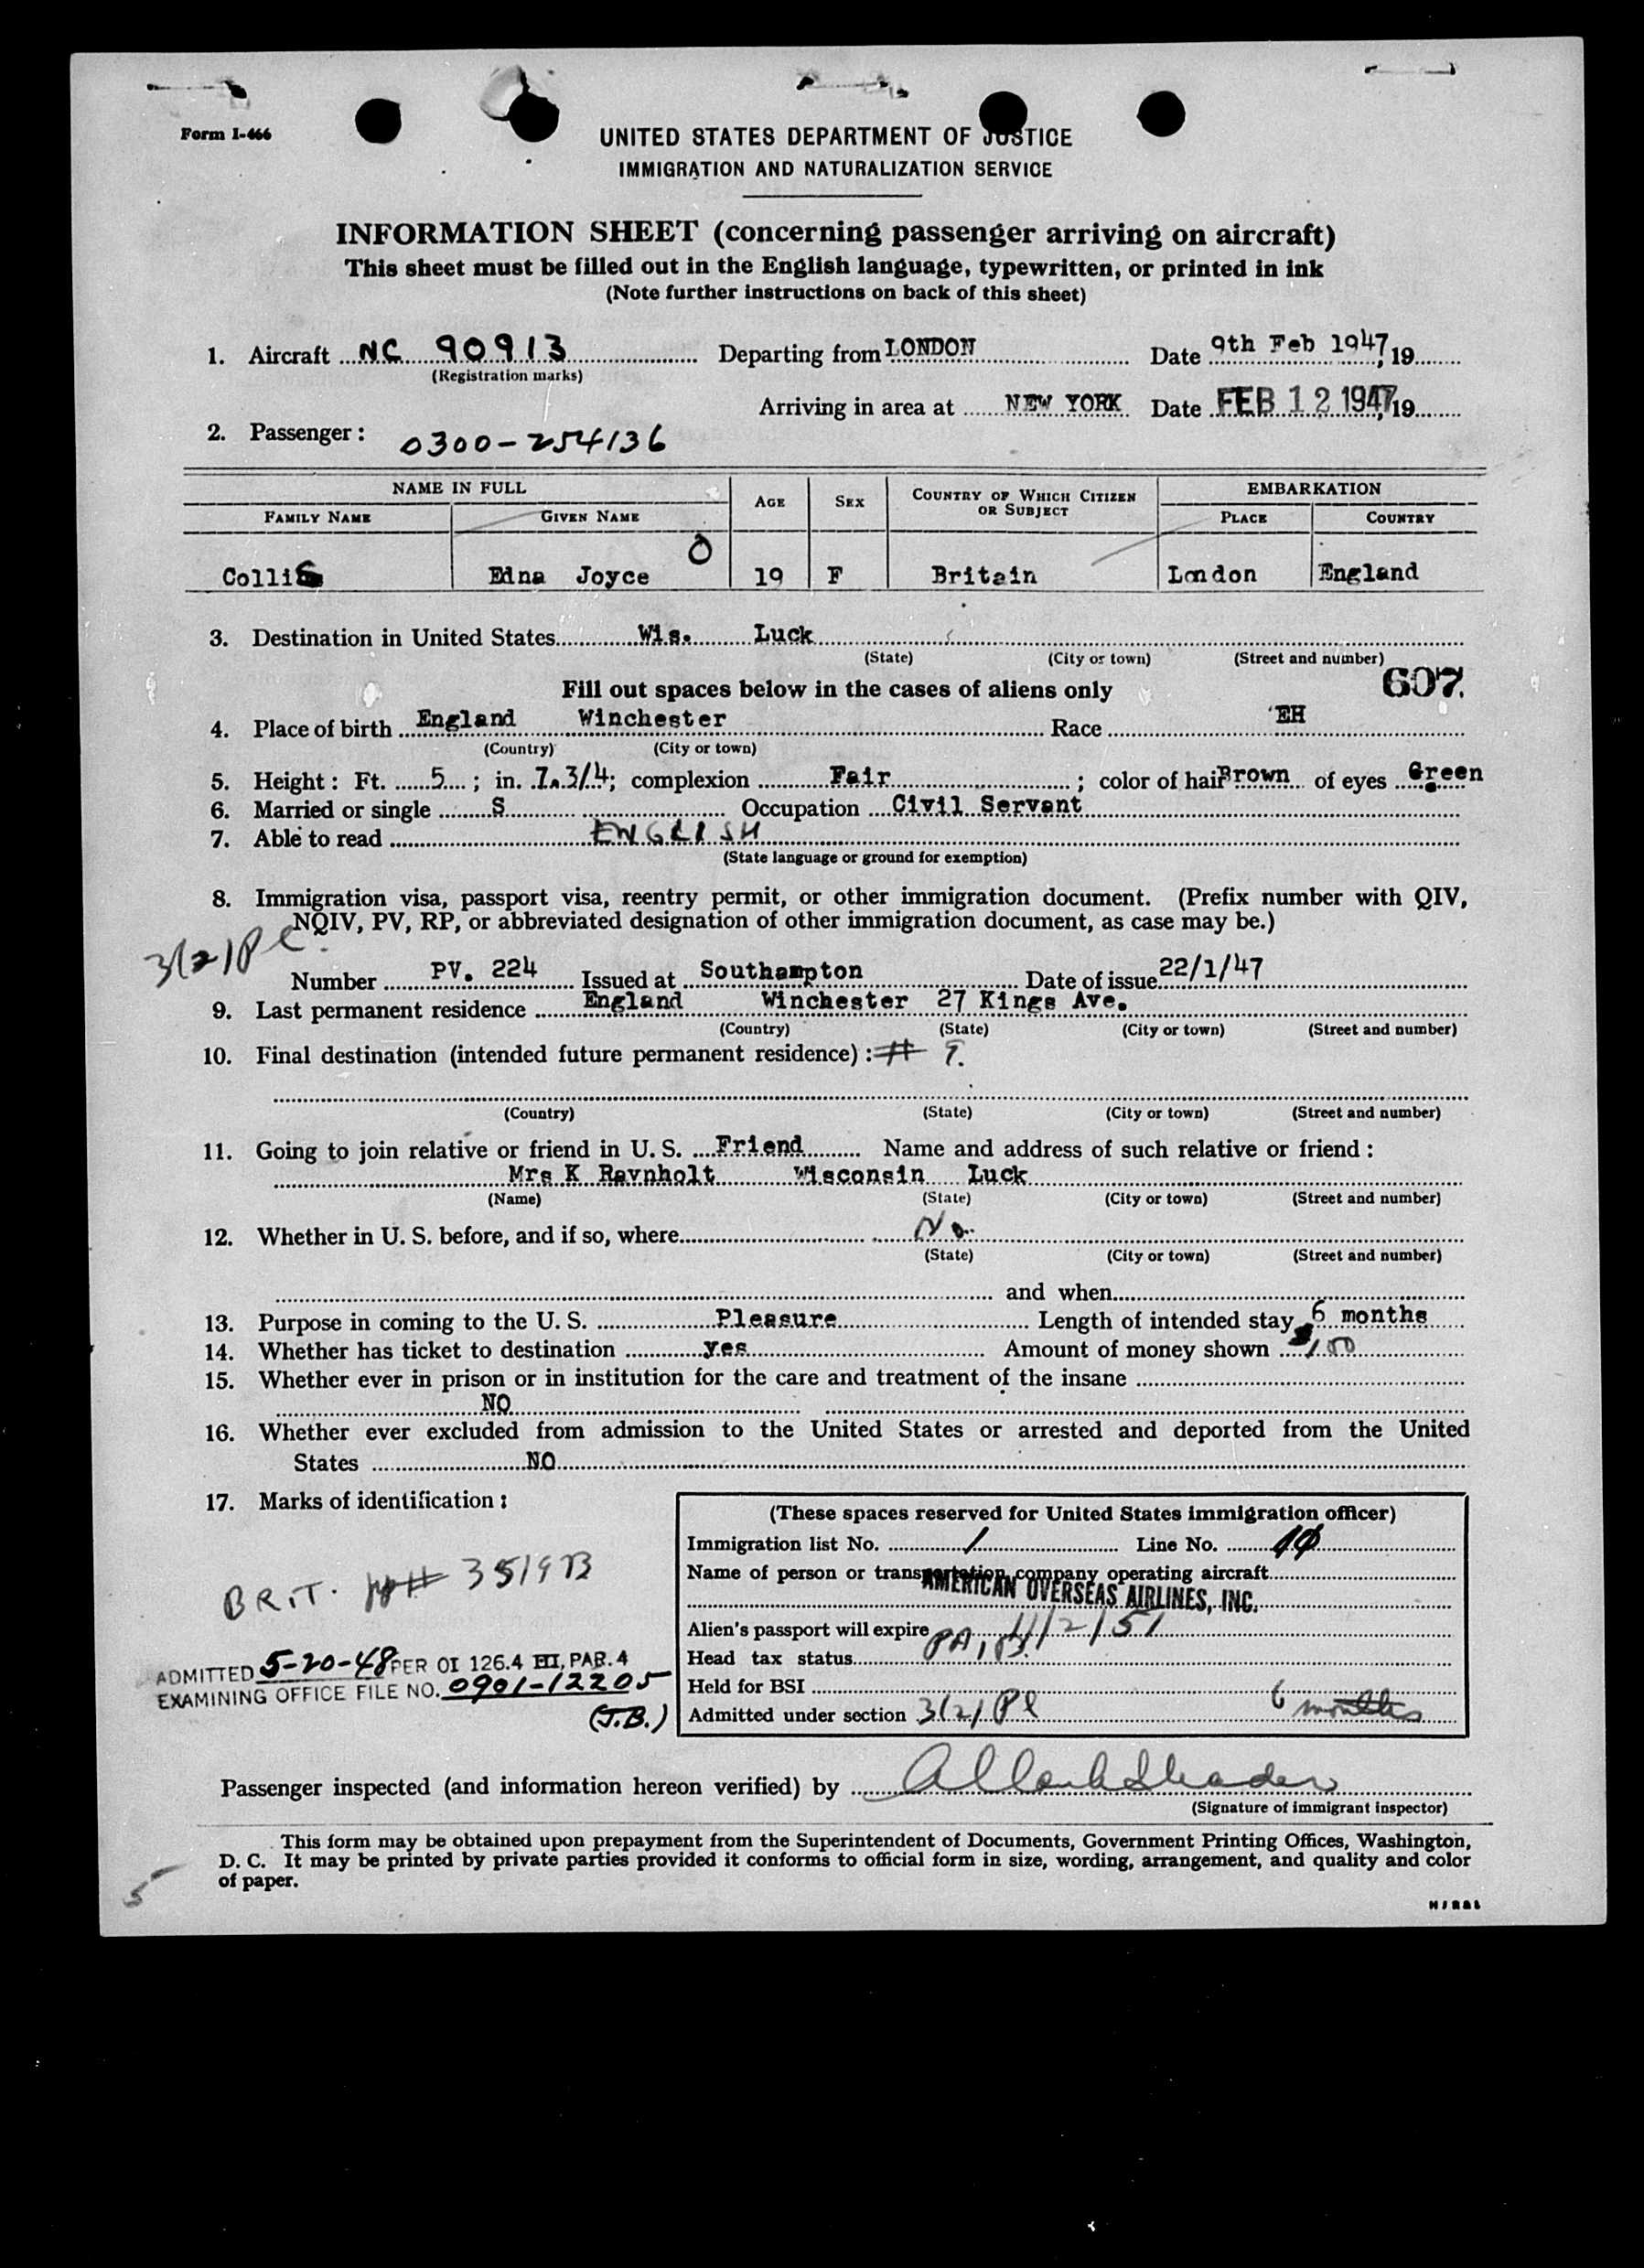 Form I-466
UNITED STATES DEPARTMENT OF JUSTICE
IMMIGRATION AND NATURALIZATION SERVICE
INFORMATION SHEET (concerning passenger arriving on aircraft)
This sheet must be filled out in the English language, typewritten, or printed in ink
(Note further instructions on back of this sheet)
1. Aircraft NC 90913 Departing from LONDON Date 9th Feb 1947, 19
(Registration marks)
Arriving in area at NEW YORK Date FEB 12 1947, 19
2. Passenger: 0300-254136
NAME IN FULL AGE SEX COUNTRY OF WHICH CITIZEN OR SUBJECT EMBARKATION
FAMILY NAME GIVEN NAME PLACE COUNTRY
Collis Edna Joyce 19 F Britain London England
3. Destination in United States Wis. Luck
(State) (City or town) (Street and number)
Fill out spaces below in the cases of aliens only 607.
4. Place of birth England Winchester Race EH
(Country) (City or town)
5. Height: Ft. 5; in. 7.3/4; complexion Fair; color of hair Brown of eyes Green
6. Married or single S Occupation Civil Servant
7. Able to read ENGLISH
(State language or ground for exemption)
8. Immigration visa, passport visa, reentry permit, or other immigration document. (Prefix number with QIV,
NQIV, PV, RP, or abbreviated designation of other immigration document, as case may be.)
3(2)Pl.
Number PV. 224 Issued at Southampton Date of issue 22/1/47
9. Last permanent residence England Winchester 27 Kings Ave.
(Country) (State) (City or town) (Street and number)
10. Final destination (intended future permanent residence): # 9.
(Country) (State) (City or town) (Street and number)
11. Going to join relative or friend in U. S. Friend Name and address of such relative or friend:
Mrs K Ravnholt Wisconsin Luck
(Name) (State) (City or town) (Street and number)
12. Whether in U. S. before, and if so, where No.
(State) (City or town) (Street and number)
and when
13. Purpose in coming to the U. S. Pleasure Length of intended stay 6 months
14. Whether has ticket to destination yes Amount of money shown $100
15. Whether ever in prison or in institution for the care and treatment of the insane
NO
16. Whether ever excluded from admission to the United States or arrested and deported from the United
States NO
17. Marks of identification:
(These spaces reserved for United States immigration officer)
Immigration list No. 1 Line No. 10
Name of person or transportation company operating aircraft
AMERICAN OVERSEAS AIRLINES, INC.
BRIT. # 351973
Alien's passport will expire 11/2/51
Head tax status
Held for BSI
Admitted under section 3(2) Pl 6 months
ADMITTED 5-20-48 PER OI 126.4 III, PAR. 4
EXAMINING OFFICE FILE NO. 0901-12205
(J.B.)
Passenger inspected (and information hereon verified) by
(Signature of immigrant inspector)
This form may be obtained upon prepayment from the Superintendent of Documents, Government Printing Offices, Washington,
D. C. It may be printed by private parties provided it conforms to official form in size, wording, arrangement, and quality and color
of paper.
5